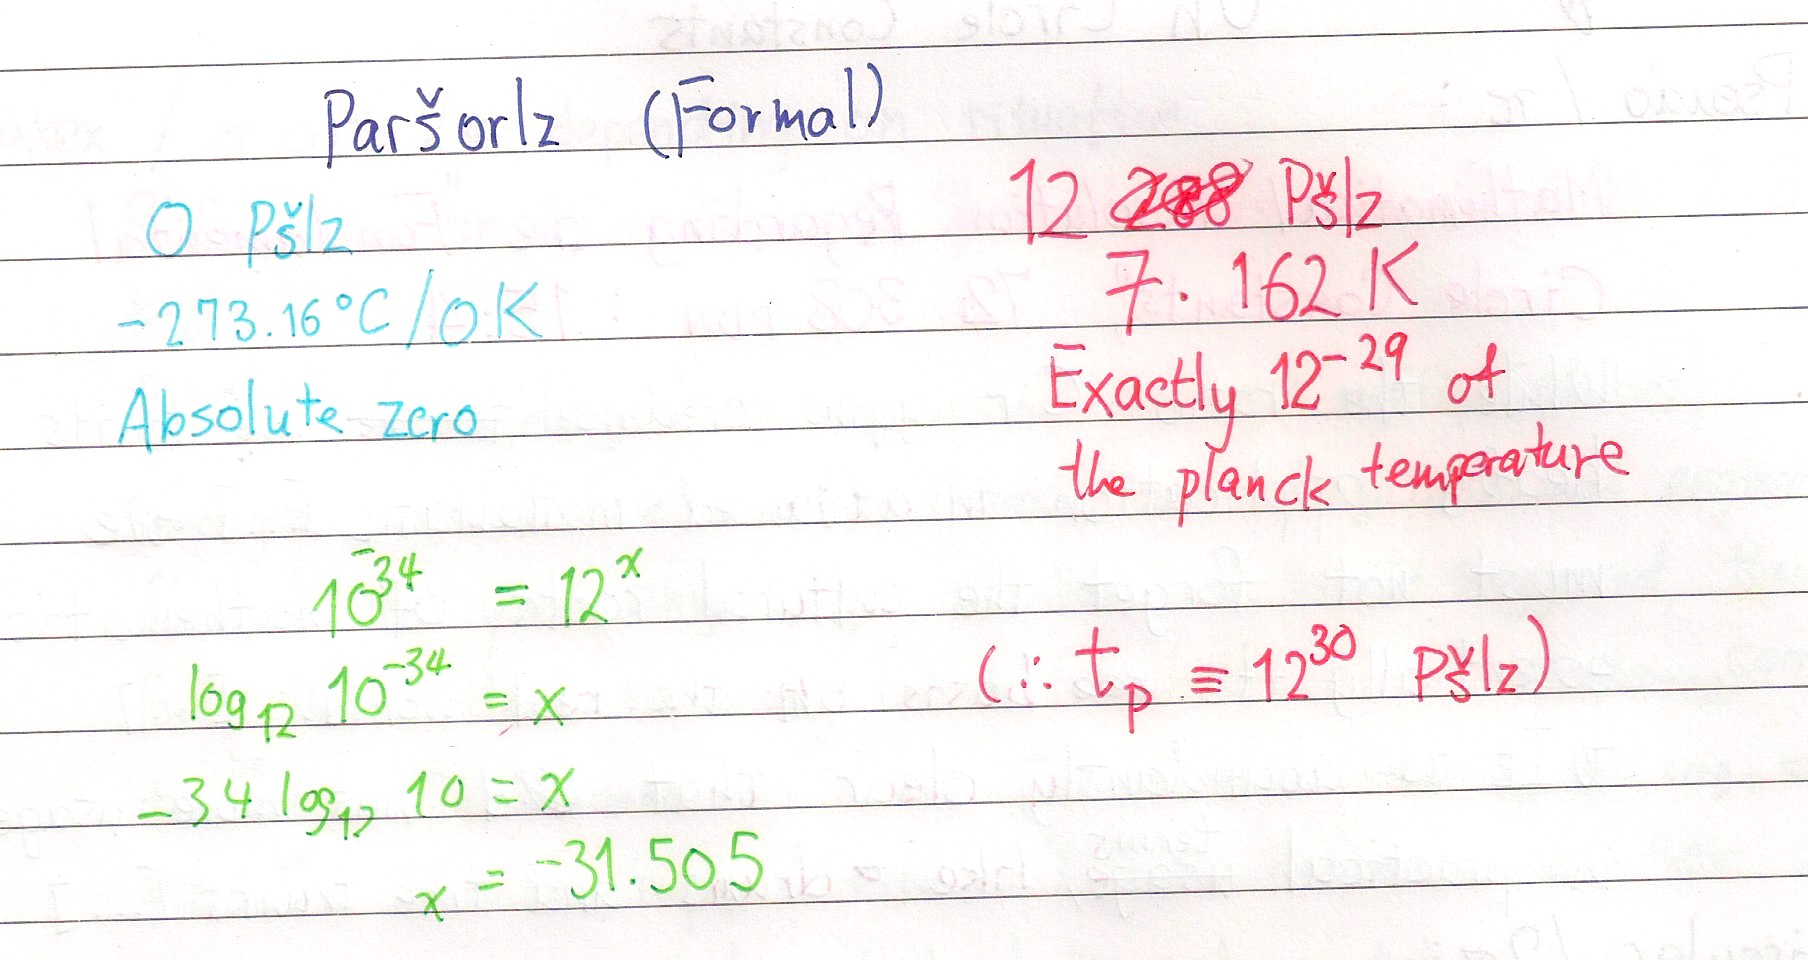 Paršorlz (Formal)
0 Pšlz
-273.16°C/0K
Absolute zero
12 288 Pšlz
7.162 K
Exactly 12⁻²⁹ of
the planck temperature
10⁻³⁴ = 12ˣ
log₁₂ 10⁻³⁴ = x
-34 log₁₂ 10 = x
x = -31.505
(∴ tₚ ≡ 12³⁰ Pšlz)